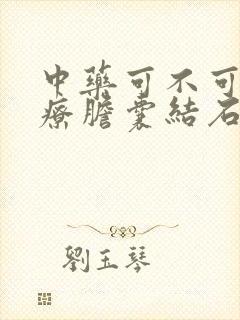 中藥可不可
療膽囊結石
劉玉琴